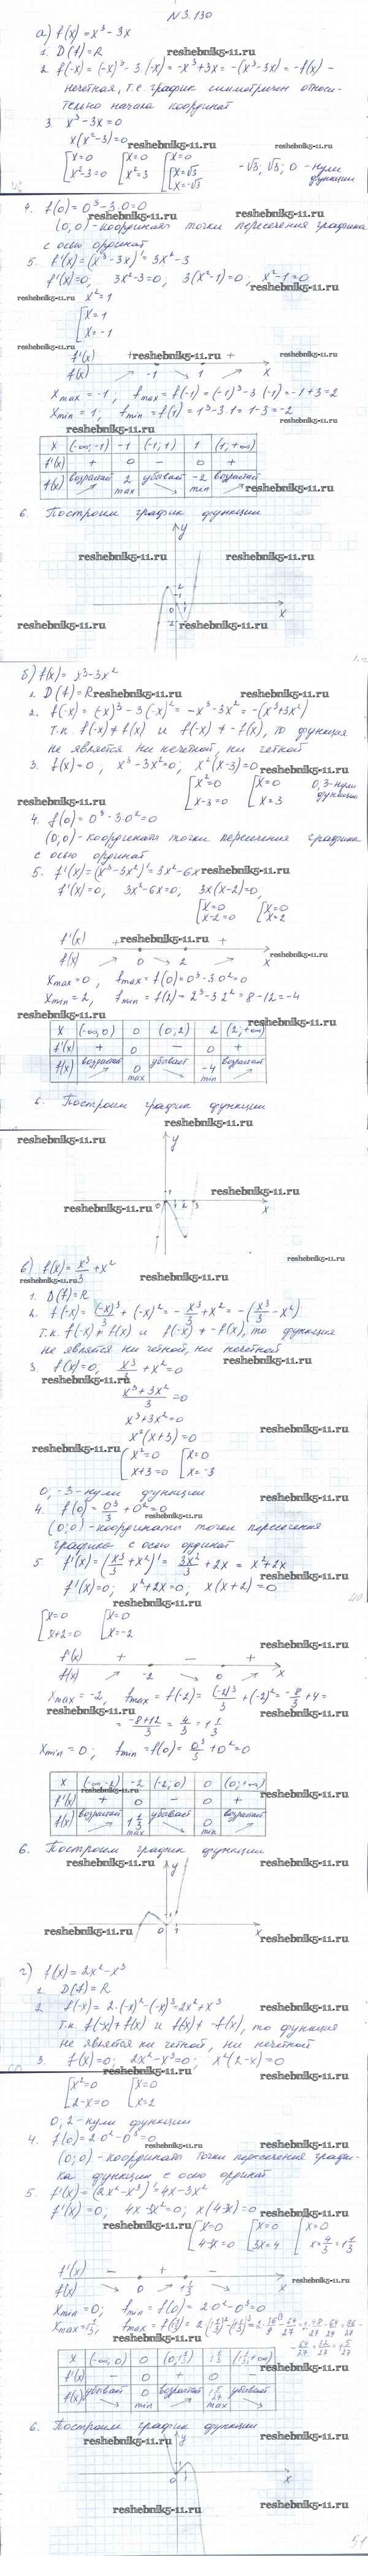 N 3.130
а) f(x) = x³ - 3x
1. D(f) = R
2. f(-x) = (-x)³ - 3·(-x) = -x³ + 3x = -(x³ - 3x) = -f(x) -
нечетная, т.е. график симметричен относи-
тельно начала координат
3. x³ - 3x = 0
x(x² - 3) = 0
[x = 0 [x = 0 [x = 0
x² - 3 = 0 x² = 3 x = √3 x = -√3 -√3; √3; 0 - нули функции
4. f(0) = 0³ - 3·0 = 0
(0; 0) - координаты точки пересечения графика
с осью ординат
5. f'(x) = (x³ - 3x)' = 3x² - 3
f'(x) = 0, 3x² - 3 = 0; 3(x² - 1) = 0, x² - 1 = 0
x² = 1
[x = 1
x = -1
f'(x) + - +
f(x) -1 1 x
x max = -1, f max = f(-1) = (-1)³ - 3·(-1) = -1 + 3 = 2
x min = 1, f min = f(1) = 1³ - 3·1 = 1 - 3 = -2
x (-∞; -1) -1 (-1; 1) 1 (1; +∞)
f'(x) + 0 - 0 +
f(x) возрастает 2 max убывает -2 min возрастает
6. Построим график функции
б) f(x) = x³ - 3x²
1. D(f) = R
2. f(-x) = (-x)³ - 3(-x)² = -x³ - 3x² = -(x³ + 3x²)
т.к. f(-x) ≠ f(x) и f(-x) ≠ -f(x), то функция
не является ни нечетной, ни четной
3. f(x) = 0; x³ - 3x² = 0, x²(x - 3) = 0
[x² = 0 [x = 0 0, 3 - нули
x - 3 = 0 x = 3 функции
4. f(0) = 0³ - 3·0² = 0
(0; 0) - координаты точки пересечения графика
с осью ординат
5. f'(x) = (x³ - 3x²)' = 3x² - 6x
f'(x) = 0, 3x² - 6x = 0, 3x(x - 2) = 0,
[x = 0 [x = 0
x - 2 = 0 x = 2
f'(x) + - +
f(x) 0 2 x
x max = 0, f max = f(0) = 0³ - 3·0² = 0
x min = 2, f min = f(2) = 2³ - 3·2² = 8 - 12 = -4
x (-∞; 0) 0 (0; 2) 2 (2; +∞)
f'(x) + 0 - 0 +
f(x) возрастает 0 max убывает -4 min возрастает
6. Построим график функции
в) f(x) = x³/3 + x²
1. D(f) = R
2. f(-x) = (-x)³/3 + (-x)² = -x³/3 + x² = -(x³/3 - x²)
т.к. f(-x) ≠ f(x) и f(-x) ≠ -f(x), то функция
не является ни четной, ни нечетной
3. f(x) = 0; x³/3 + x² = 0
(x³ + 3x²)/3 = 0
x³ + 3x² = 0
x²(x + 3) = 0
[x² = 0 [x = 0
x + 3 = 0 x = -3
0, -3 - нули функции
4. f(0) = 0³/3 + 0² = 0
(0; 0) - координаты точки пересечения
графика с осью ординат
5. f'(x) = (x³/3 + x²)' = 3x²/3 + 2x = x² + 2x
f'(x) = 0; x² + 2x = 0, x(x + 2) = 0
[x = 0 [x = 0
x + 2 = 0 x = -2
f'(x) + - +
f(x) -2 0 x
x max = -2, f max = f(-2) = (-2)³/3 + (-2)² = -8/3 + 4 =
= (-8 + 12)/3 = 4/3 = 1 1/3
x min = 0; f min = f(0) = 0³/3 + 0² = 0
x (-∞; -2) -2 (-2; 0) 0 (0; +∞)
f'(x) + 0 - 0 +
f(x) возрастает 1 1/3 max убывает 0 min возрастает
6. Построим график функции
г) f(x) = 2x² - x³
1. D(f) = R
2. f(-x) = 2·(-x)² - (-x)³ = 2x² + x³
т.к. f(-x) ≠ f(x) и f(x) ≠ -f(x), то функция
не является ни четной, ни нечетной
3. f(x) = 0; 2x² - x³ = 0; x²(2 - x) = 0
[x² = 0 [x = 0
2 - x = 0 x = 2
0; 2 - нули функции
4. f(0) = 2·0² - 0³ = 0
(0; 0) - координаты точки пересечения графи-
ка функции с осью ординат
5. f'(x) = (2x² - x³)' = 4x - 3x²
f'(x) = 0; 4x - 3x² = 0; x(4 - 3x) = 0
[x = 0 [x = 0 [x = 0
4 - 3x = 0 3x = 4 x = 4/3 = 1 1/3
f'(x) - + -
f(x) 0 1 1/3 x
x min = 0; f min = f(0) = 2·0² - 0³ = 0
x (-∞; 0) 0 (0; 1 1/3) 1 1/3 (1 1/3; +∞)
f'(x) - 0 + 0 -
f(x) убывает 0 min возрастает 1 5/27 max убывает
6. Построим график функции
reshebnik5-11.ru